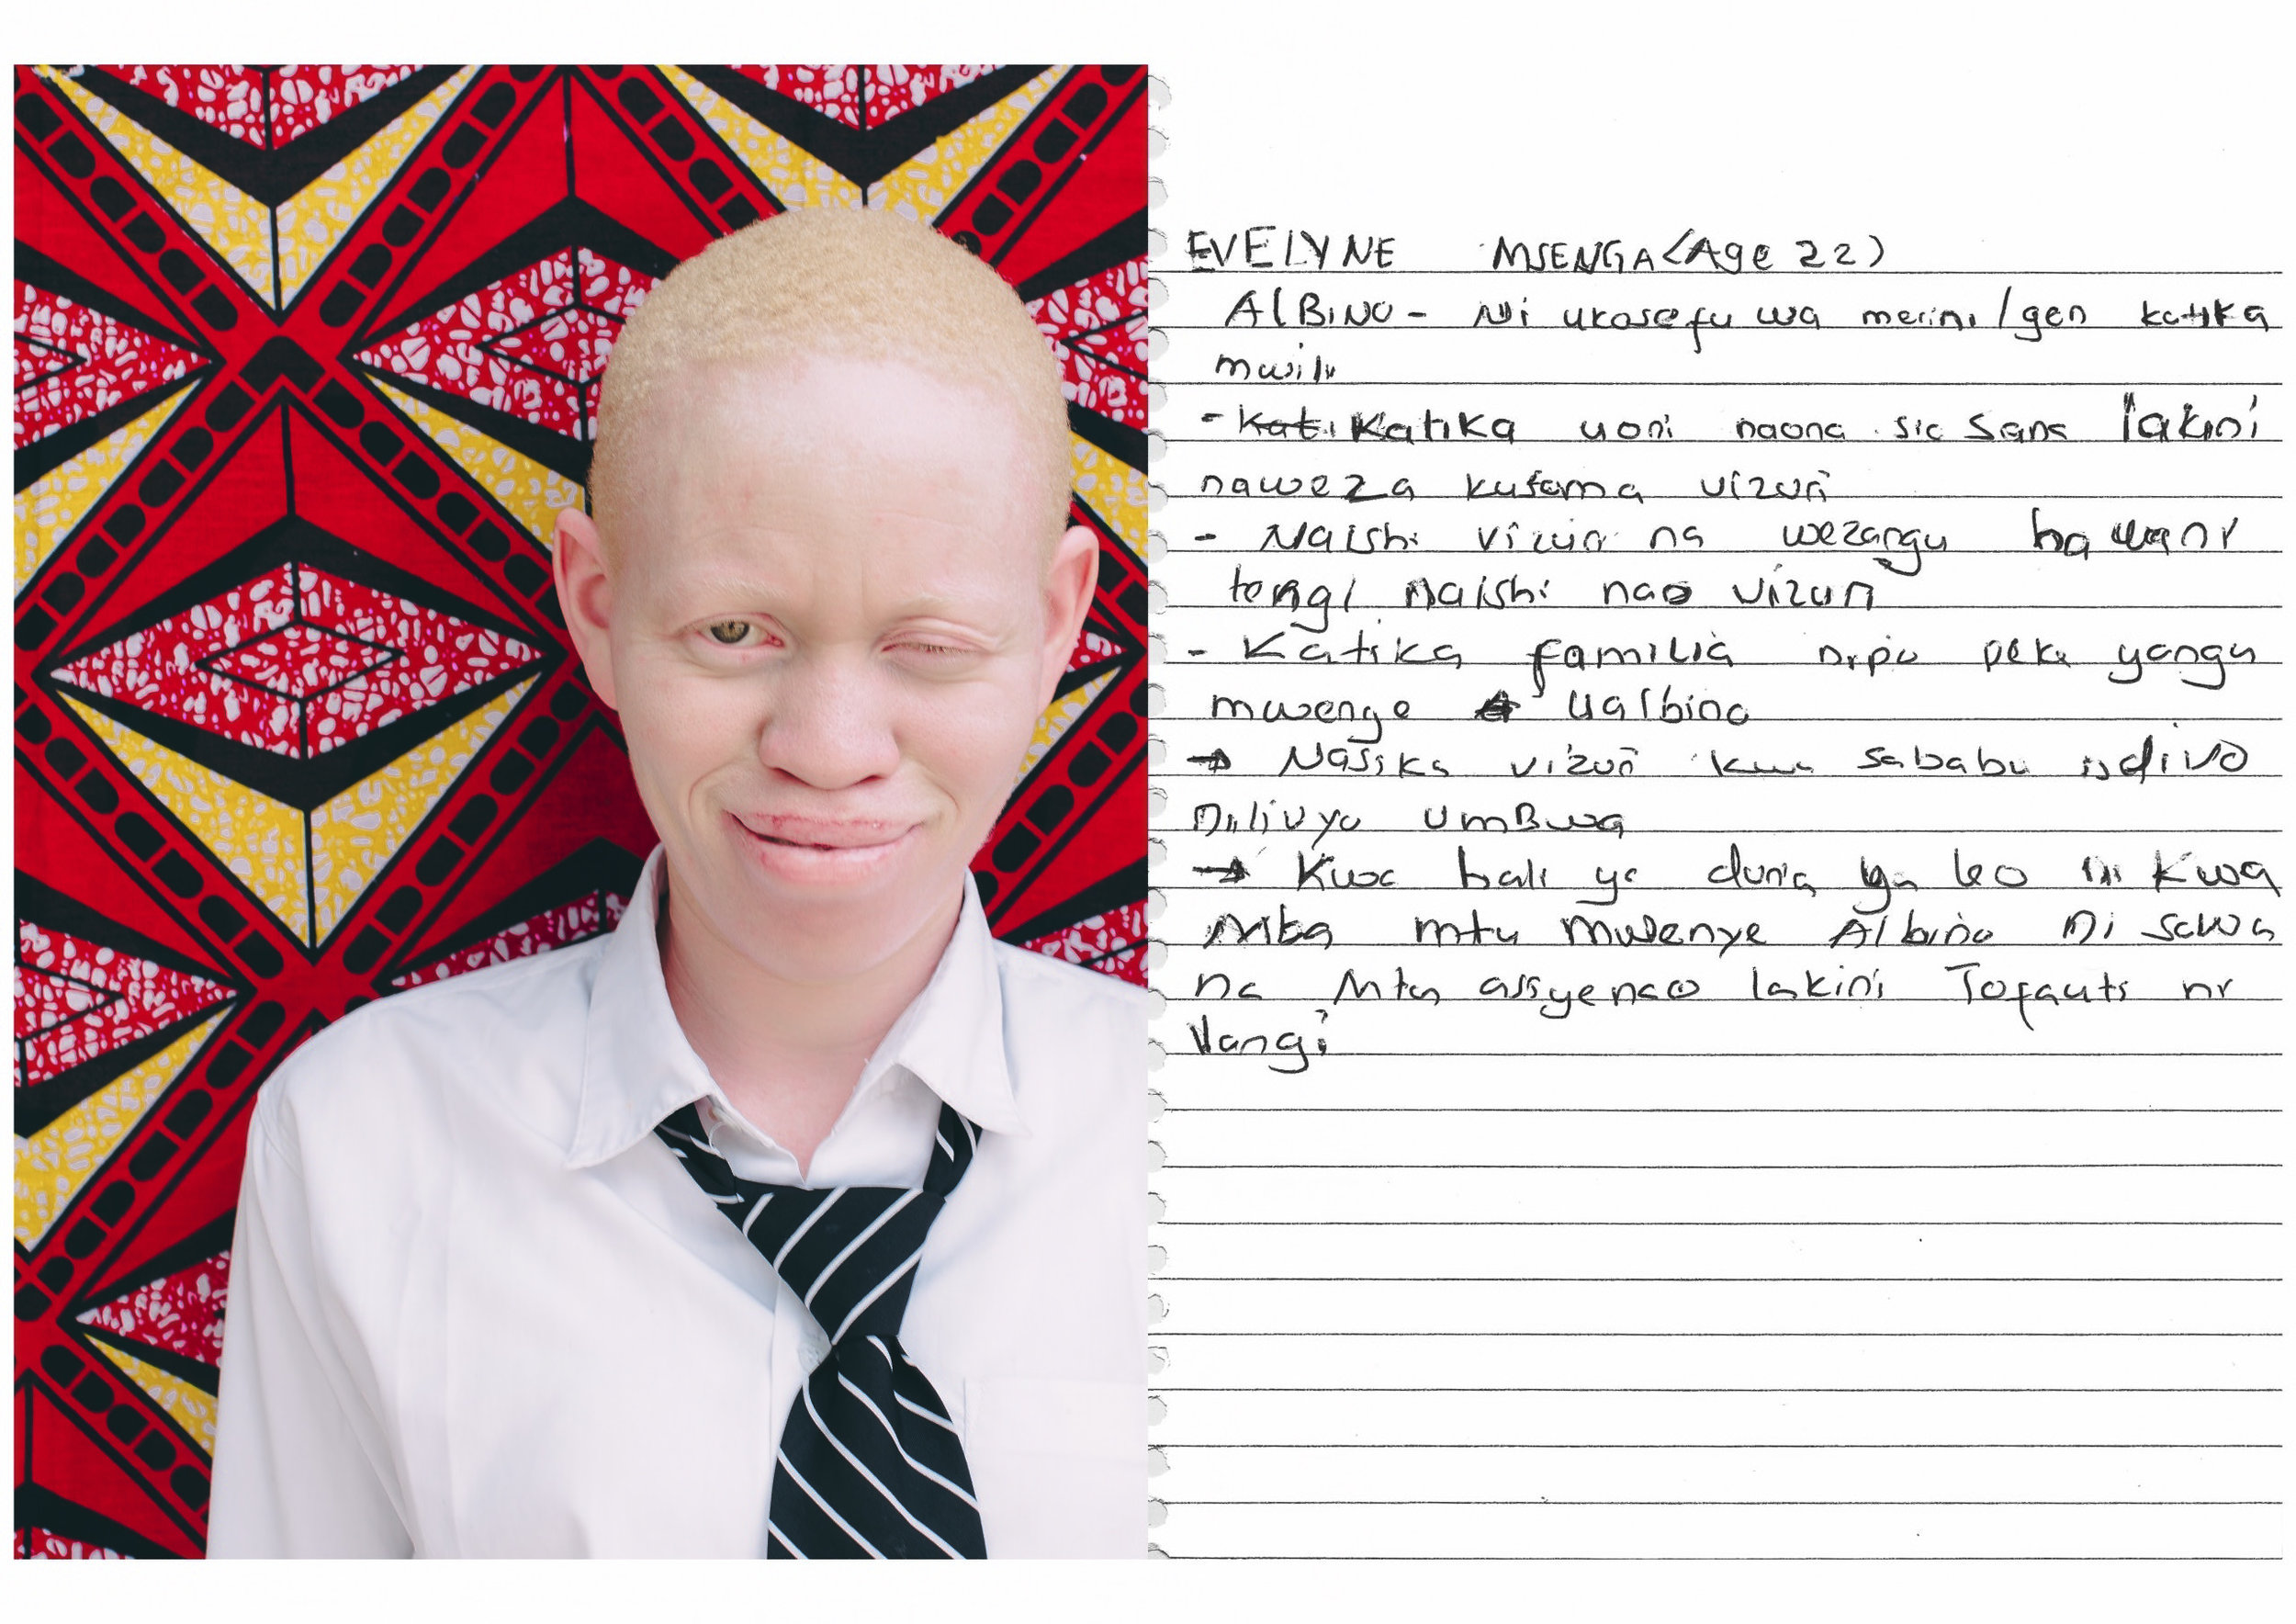 EVELYNE MSENGA (Age 22)
AlBINO - Ni ukosefu wa merini/gen katika
mwili
- Katika uoni naona sio sana lakini
naweza kusoma vizuri
- Naishi vizuri na wezangu hawani
tengi naishi nao vizuri
- Katika familia nipo peke yangu
mwenye Ualbino
→ Nasika vizuri kwa sababu ndivo
nilivyo umBwa
→ Kwa hali ya dunia ya leo ni Kwa
Mba mtu Mwenye Albino Ni sawa
na Mtu assyenao lakini Tofauti ni